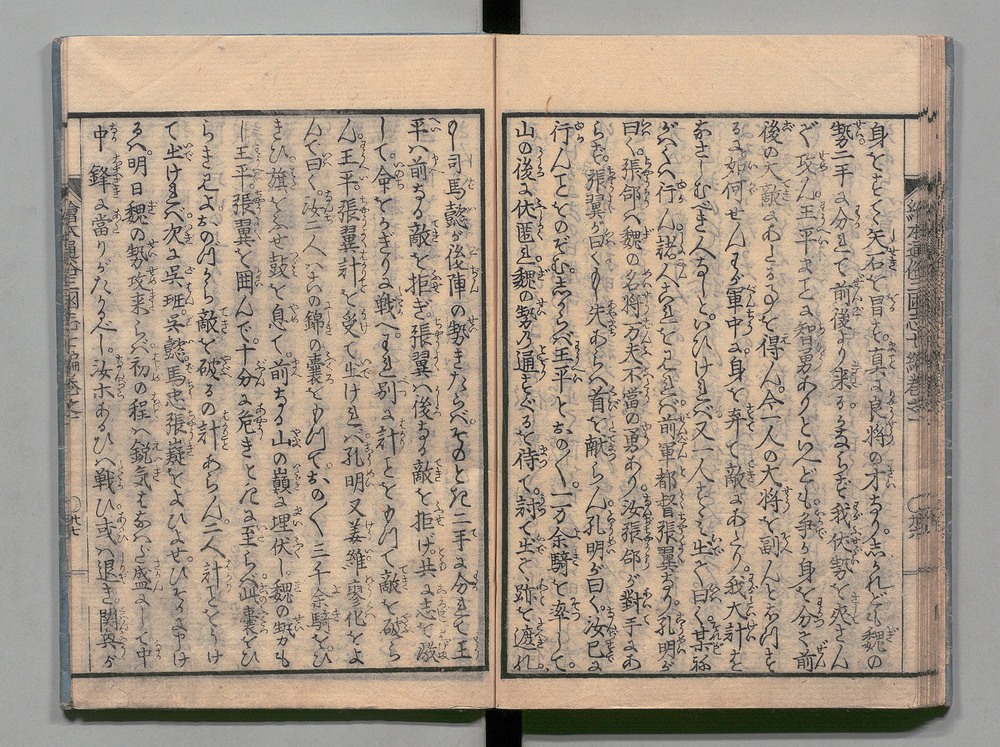 身をすてゝ矢石を冒す。真に良将の才なり。志かれども魏の
勢二手に分れて前後より来るならば。我伏勢を夾さん
で攻ん。王平まことに智勇ありといへども争か身を分て前
後の大敵にあたる事を得ん。今一人の大将を副んとおもへ
ども如何せんわが軍中に身を弃て敵にあたり。我大計を
なさしむべき人なしといひけれバ又一人すゝみ出て曰く某ねがハくハ
行ん。諸人これをミれバ前軍都督張翼なり。孔明が
曰く張郃ハ魏の名将万夫不當の勇あり。汝張郃が對手にあ
らず。張翼が曰くもし失あらバ首を献らん。孔明が曰く汝已に
行んことをのぞむ。志からバ王平とおの〳〵一万余騎を率して。
山の後に伏匿れ。魏の勢の通りすぐるを待て。討て出て跡を遮れ。
もし司馬懿が後陣の勢きたらバ。そのとき二手に分れて王
平ハ前なる敵を拒ぎ。張翼ハ後なる敵を拒げ。共に志を激
して。命をかぎりに戦へ。われ別に計ごとをもつて敵を破ら
ん。王平。張翼計を受て出けれバ孔明又姜維廖化をよ
んで曰く。汝二人ハこの錦の嚢をもつておの〳〵三千余騎をひ
きひ旗をふせ鼓を息て。前なる山の巔に埋伏し魏の勢も
し王平。張翼を囲んで。十分に危きときに至らバ此嚢をひ
らき見よおのづから敵を破るの計あらん。二人計ごとをうけ
て出けれバ次に呉班。呉懿馬忠張嶷をよびよせ。ひそかに申け
るハ。明日魏の勢攻来らバ初の程ハ鋭気もなハだ盛にして中
中鋒に當りがたかるべし。汝ホあるひハ戦ひ或ハ退き。関興が
繪本通俗三國志七編巻之一